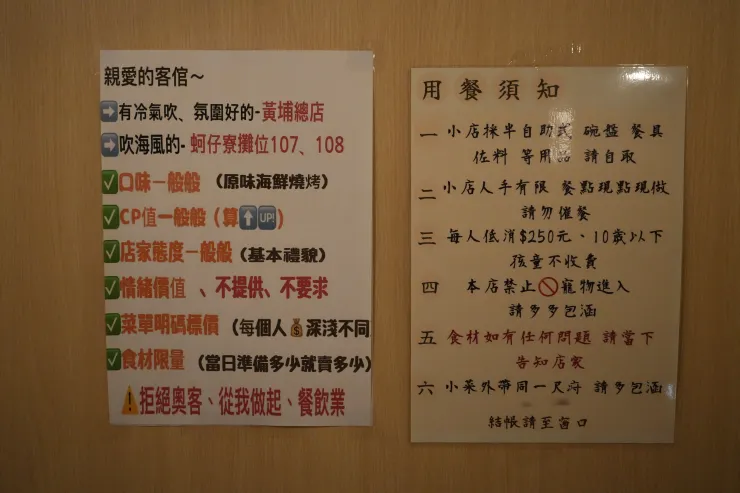 親愛的客倌～
➡️有冷氣吹、氛圍好的-黃埔總店
➡️吹海風的- 蚵仔寮攤位107、108
✅口味一般般 （原味海鮮燒烤）
✅CP值一般般（算⬆️🆙）
✅店家態度一般般（基本禮貌）
✅情緒價值 、不提供、不要求
✅菜單明碼標價 （每個人💰深淺不同
✅食材限量 （當日準備多少就賣多少）
⚠️拒絕奧客、從我做起、餐飲業
用餐須知
一 小店採半自助式 碗盤 餐具
佐料 等用品 請自取
二 小店人手有限 餐點現點現做
請勿催餐
三 每人低消$250元、10歲以下
孩童不收費
四 本店禁止🚫寵物進入
請多多包涵
五 食材如有任何問題 請當下
告知店家
六 小菜外帶同一尺寸 請多包涵
結帳請至窗口